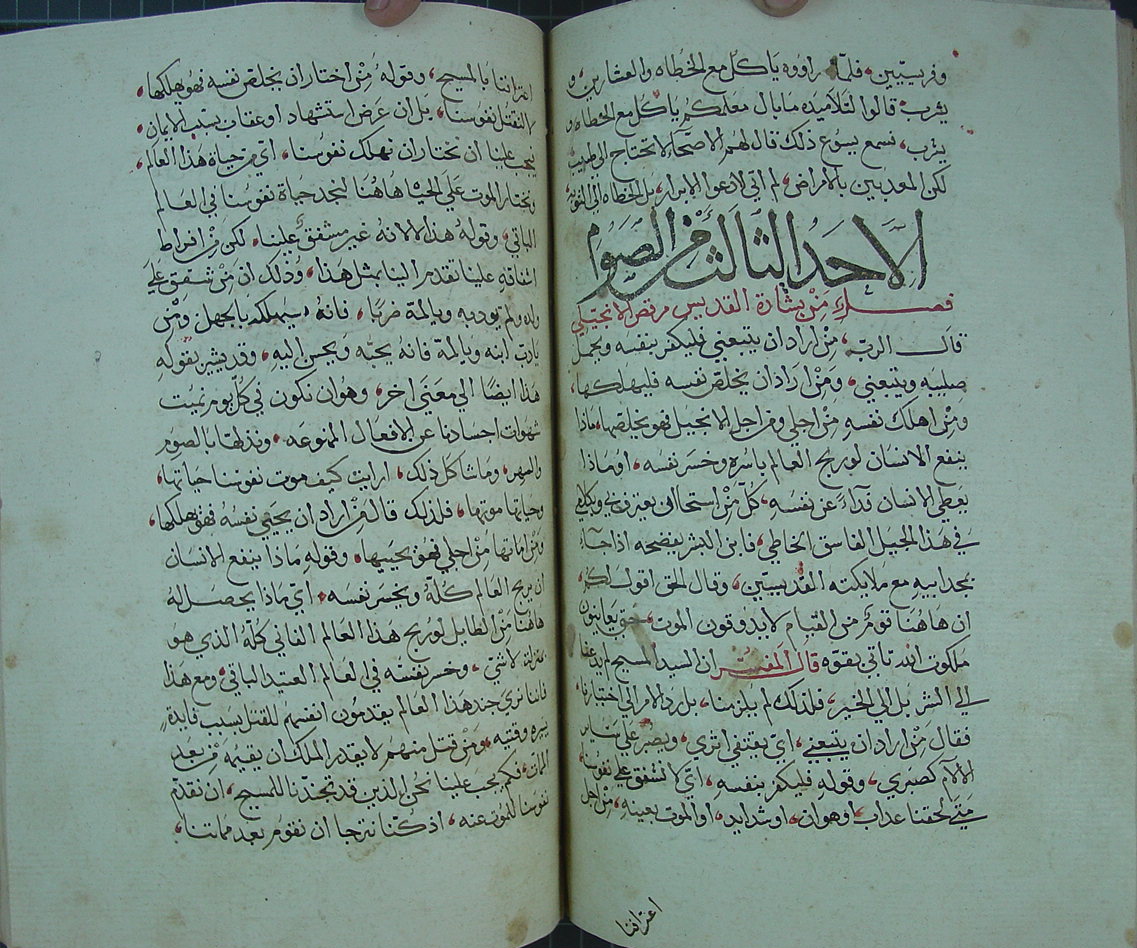 وفريسيّين، فلمّا راووه ياكل مع الخطاه والعشارين، و
يشرب قالوا لتلاميذه مابال معلمكم ياكل مع الخطاه و
يشرب، فسمع يسوع ذلك قال لهم الاصحّا لا تحتاج الى طبيب
لكن المعذبين بالامراض، لم اتي لادعوا الابرار، بل الخطاه الى التوبه
الاحد الثالث من الصوم
فصل من بشارة القديس مرقص الانجيلي
قال الرب، من اراد ان يتبعني فليكفر بنفسه ويحمل
صليبه ويتبعني، ومن اراد ان يخلص نفسه فليهلكها،
ومن اهلك نفسه من اجلي ومن اجل الانجيل فهو يخلصها، ماذا
ينفع الانسان لو ربح العالم باسره وخسر نفسه، او ماذا
يعطي الانسان فداء عن نفسه، كل من استحا ان يعترف بي وبكلامي
في هذا الجيل الفاسق الخاطي، فابن البشر يفضحه اذا جاء
بمجد ابيه مع ملايكته القديسيّين، وقال الحق اقول لكم،
ان هاهنا قوم من القيام لا يذوقون الموت، حتى يعاينون
ملكوت الله تاتي بقوه قال المفسر ان السيد المسيح لم يدعنا
الى الشر بل الى الخير، فلذلك لم يلزمنا، بل رد الامر الى اختيارنا،
فقال من اراد ان يتبعني، اي يقتفي اثري، ويصبر على ساير
الالام كصبري، وقوله فليكفر بنفسه، اي لا نشفق على نفوسنا،
متى لحقنا عذاب، او هوان، او شدايد، او الموت بعينه، من اجل
اعترافنا
اعترافنا بالمسيح، وقوله من اختار ان يخلص نفسه فهو يهلكها،
لا لنقتل نفوسنا، بل ان عرض استشهاد او عقاب بسبب الايمان،
يجب علينا ان نختار ان نهلك نفوسنا، اي من حياة هذا العالم،
ونختار الموت على الحياه هاهنا لنجد حياة نفوسنا في العالم
الباقي، وقوله هذا لا لانه غير مشفق علينا، لكن من افراط
اشفاقه علينا تقدم الينا بمثل هذا، وذلك ان من شفق على
ولده ولم يودبه ويالمه ضربا، فانه يهلكه بالجهل، ومن
يادب ابنه ويالمه فانه يحبه ويحسن اليه، وقد يشير بقوله
هذا ايضا الى معنى اخر، وهو ان نكون في كل يوم نميت
شهوات اجسادنا عن الافعال الممنوعه، ونذلها بالصوم
والسهر، وما شاكل ذلك، ارايت كيف موت نفوسنا حياتها،
وحياتها موتها، فلذلك قال من اراد ان يحيي نفسه فهو يهلكها،
ومن اماتها من اجلي فهو يحييها، وقوله ماذا ينفع الانسان
ان يربح العالم كله ويخسر نفسه، اي ماذا يحصل له
هاهنا من الطايل لو ربح هذا العالم الفاني كله الذي هو
بمنزلة لاشي، وخسر نفسه في العالم العتيد الباقي، ومع هذا
فاننا نرى جند هذا العالم يقدمون انفسهم للقتل بسبب فايدة
يسيره وقتيه، ومن قتل منهم لا يقدر الملك ان يقيمه من بعد
الممات، فكم يجب علينا نحن الذين قد تجندنا للمسيح، ان نقدم
نفوسنا للموت عنه، اذ كنا نترجا ان نقوم بعد مماتنا،